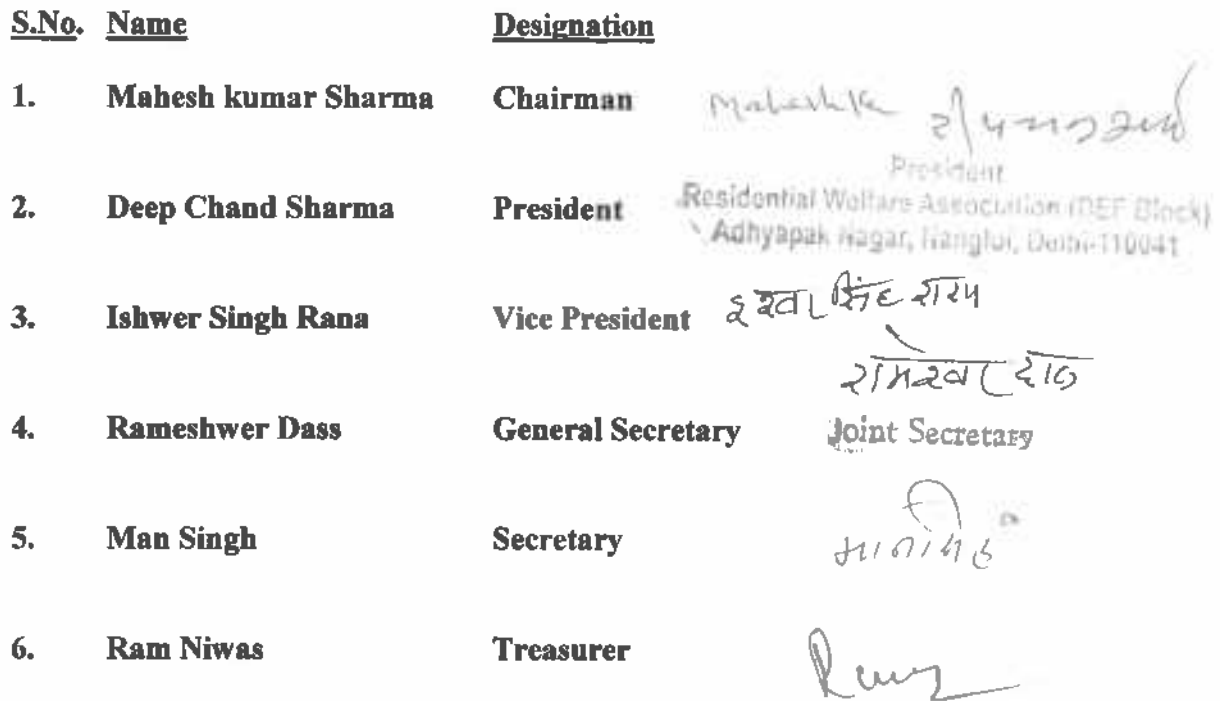 S.No. Name Designation
1. Mahesh kumar Sharma Chairman
President
2. Deep Chand Sharma President Residential Welfare Association (DEF Block)
Adhyapak Nagar, Nangloi, Delhi-110041
3. Ishwer Singh Rana Vice President
4. Rameshwer Dass General Secretary Joint Secretary
5. Man Singh Secretary मानसिंह
6. Ram Niwas Treasurer